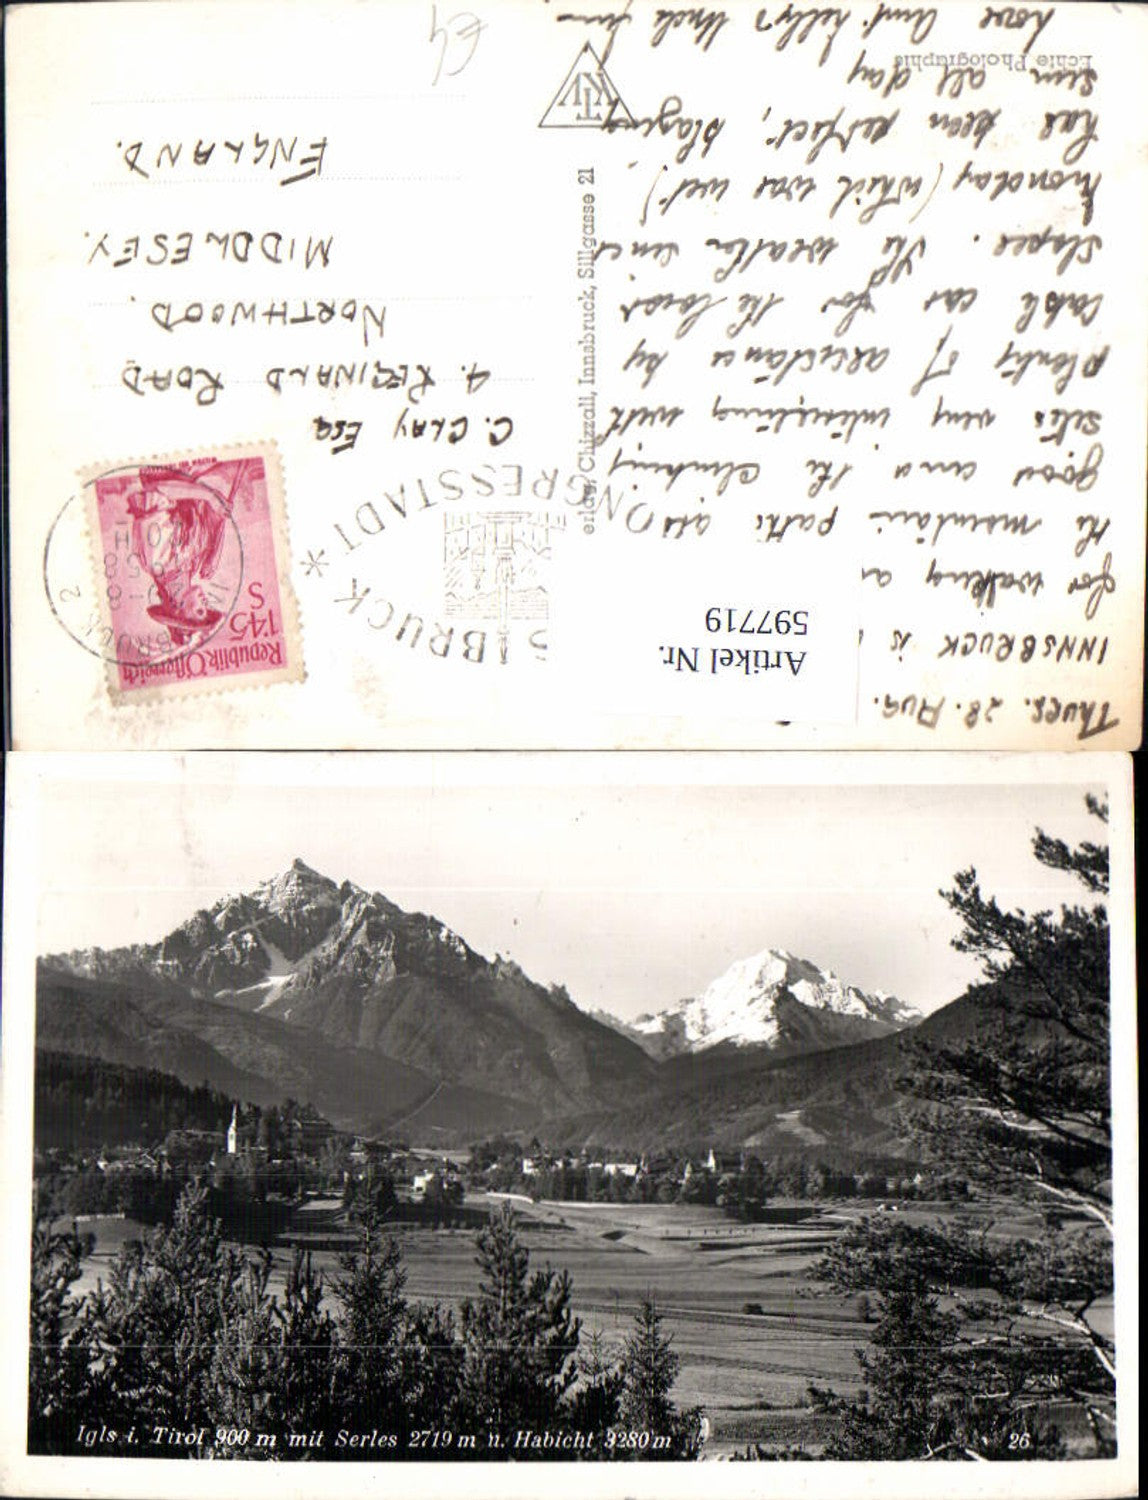 Thurs. 28. Aug.
INNSBRUCK is
for walking
the mountain paths
good and the climbing
very interesting with
plenty of assistance by
cable car for the lower
slopes. The weather since
Monday (which was wet)
has been perfect, blazing
sun all day
love Aunt Nelly & Uncle Jim
Echte Photographie
KTV
erlag Chizzali, Innsbruck, Sillgasse 21
Artikel Nr.
597719
KONGRESSSTADT * INNSBRUCK
INNSBRUCK 2
Republik Österreich
1'45
S
C. CLAY ESQ
4. REGINALD ROAD
NORTHWOOD.
MIDDLESEX.
ENGLAND.
£4
Igls i. Tirol 900 m mit Serles 2719 m u. Habicht 3280 m
26